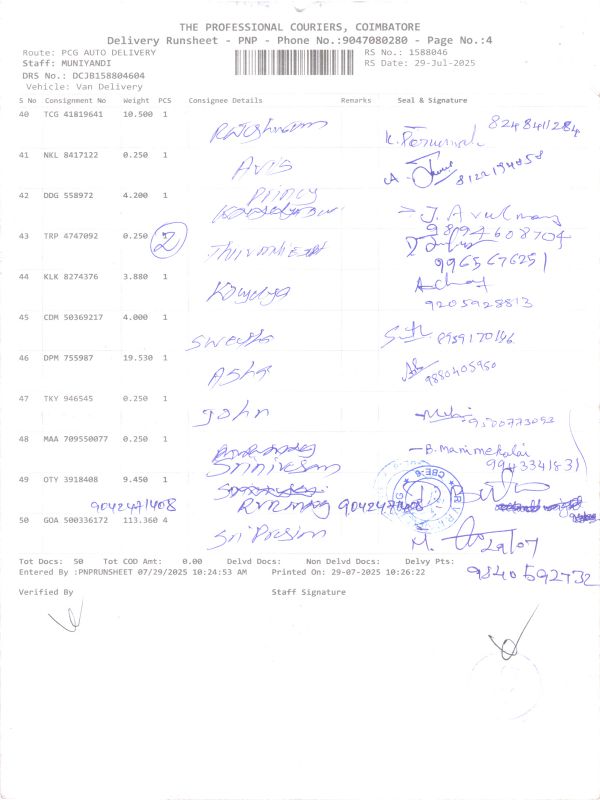 THE PROFESSIONAL COURIERS, COIMBATORE
Delivery Runsheet - PNP - Phone No.:9047080280 - Page No.:4
Route: PCG AUTO DELIVERY RS No.: 1588046
Staff: MUNIYANDI RS Date: 29-Jul-2025
DRS No.: DCJB158804604
Vehicle: Van Delivery
S No Consignment No Weight PCS Consignee Details Remarks Seal & Signature
40 TCG 41819641 10.500 1
8248411284
41 NKL 8417122 0.250 1
8122194858
42 DDG 558972 4.200 1 Princy
J. Arulmary
43 TRP 4747092 0.250 2
9894608704
9965676251
44 KLK 8274376 3.880 1
9205928813
45 CDM 50369217 4.000 1
Swetha
46 DPM 755987 19.530 1
Asha 9880405950
47 TKY 946545 0.250 1
John 9500773092
48 MAA 709550077 0.250 1
Srinivasan B. Manimekalai
9943341831
49 OTY 3918408 9.450 1
9042471408 9042471408
50 GOA 500336172 113.360 4
M. 29/07
Tot Docs: 50 Tot COD Amt: 0.00 Delvd Docs: Non Delvd Docs: Delvy Pts:
9840592732
Entered By :PNPRUNSHEET 07/29/2025 10:24:53 AM Printed On: 29-07-2025 10:26:22
Verified By Staff Signature